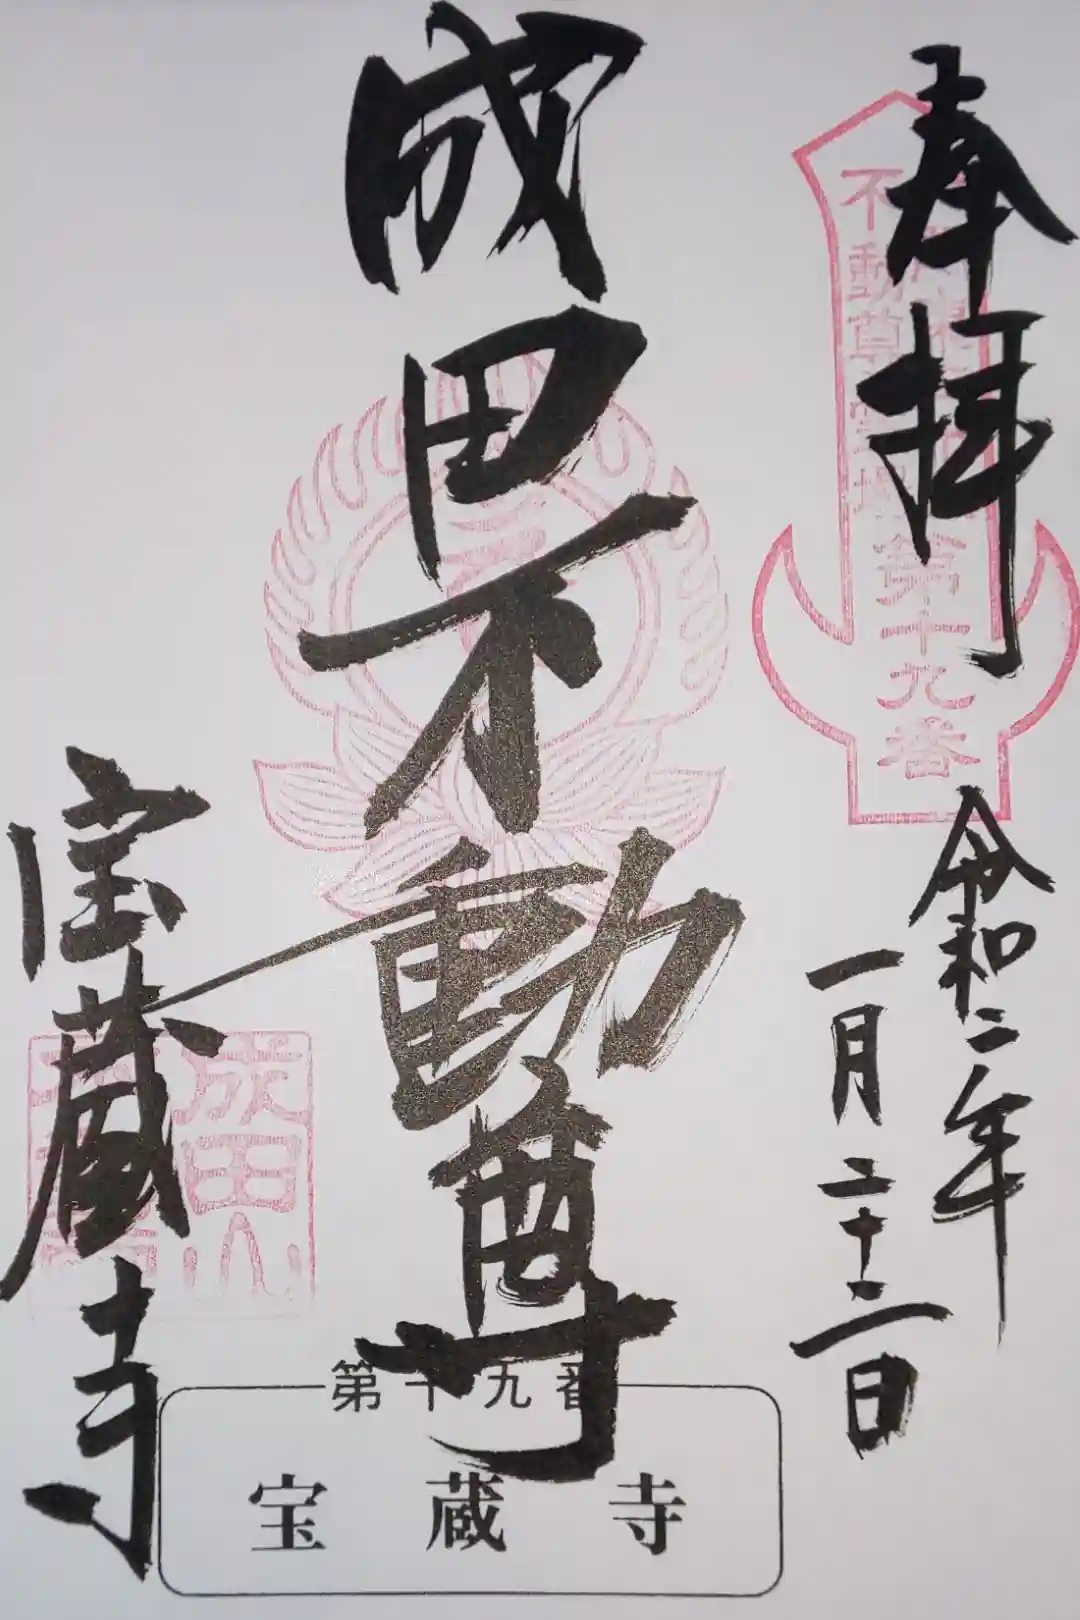 奉拝
不動尊霊場
第十九番
令和二年
一月二十二日
成田不動尊
宝蔵寺
成田山
第十九番
宝蔵寺